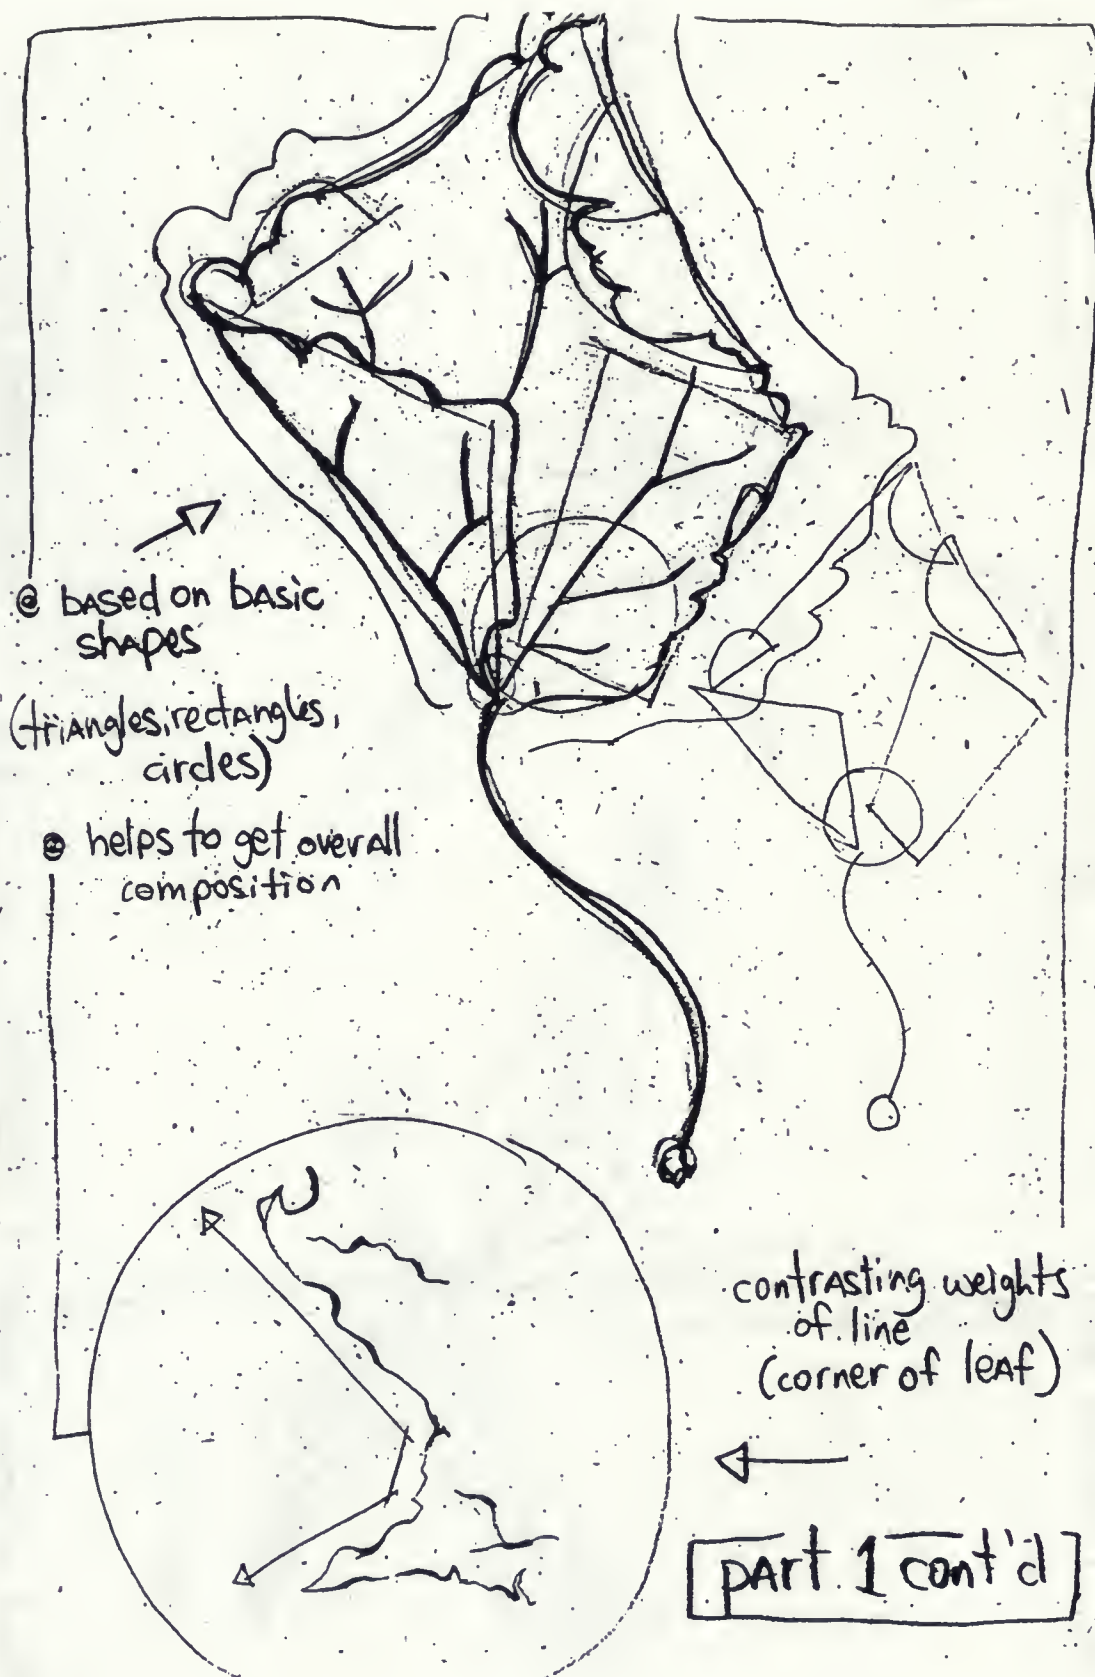 based on basic
shapes
(triangles, rectangles,
circles)
helps to get overall
composition
contrasting weights
of line
(corner of leaf)
part 1 cont'd